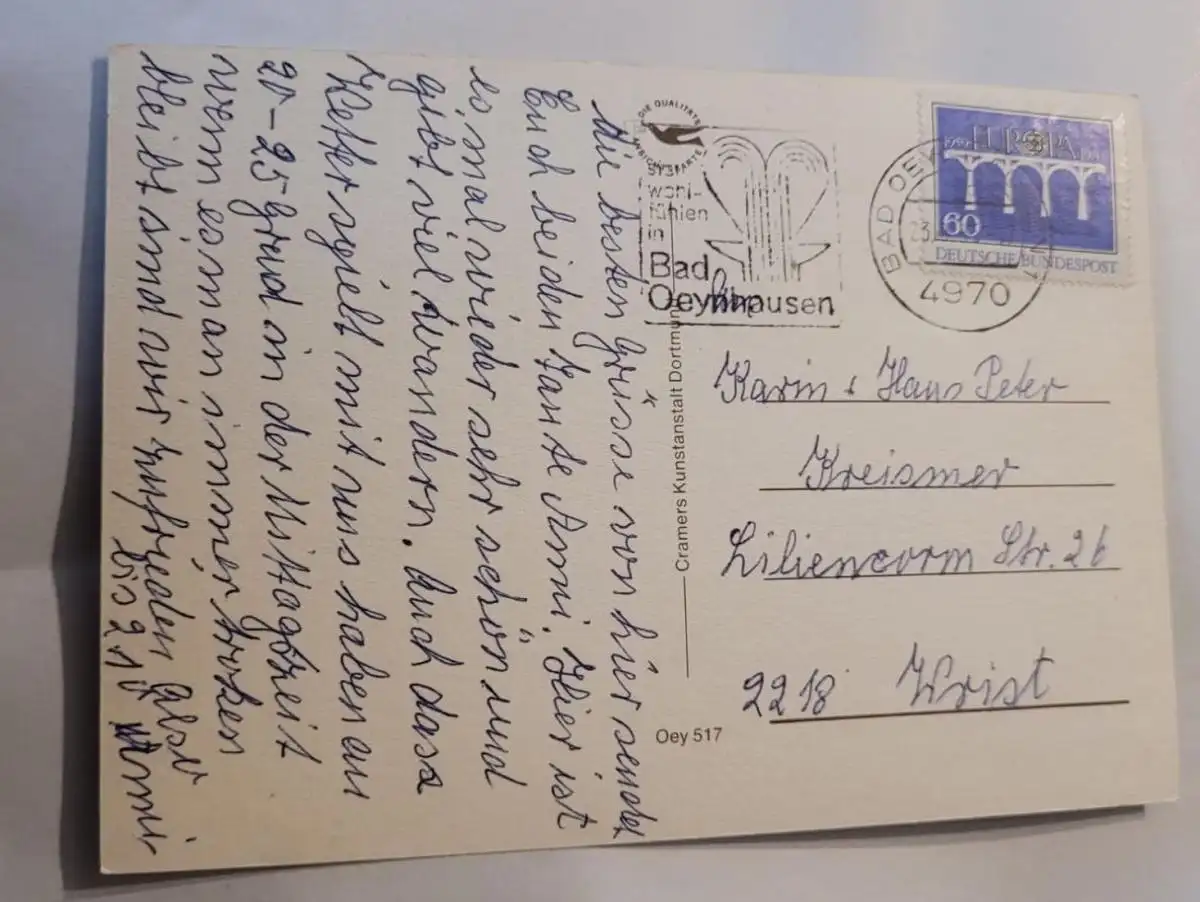 Die besten Grüsse von hier sendet
Euch beiden Tante Anni. Hier ist
es mal wieder sehr schön und
gibt viel Wandern. Auch dass
Wetter spielt mit uns haben an
20-25 Grad in der Mittagszeit
wenn es man immer troken
bleibt sind wir zufrieden also
bis 2.10 Anni
DIE QUALITÄTS
ANSICHTSKARTE
wohl-
fühlen
in
Bad
Oeynhausen
BAD OEYN
23.
4970
EUROPA
60
DEUTSCHE BUNDESPOST
Cramers Kunstanstalt Dortmund
Karin + Hans Peter
Kreismer
Str. 26
2218 Wrist
Oey 517